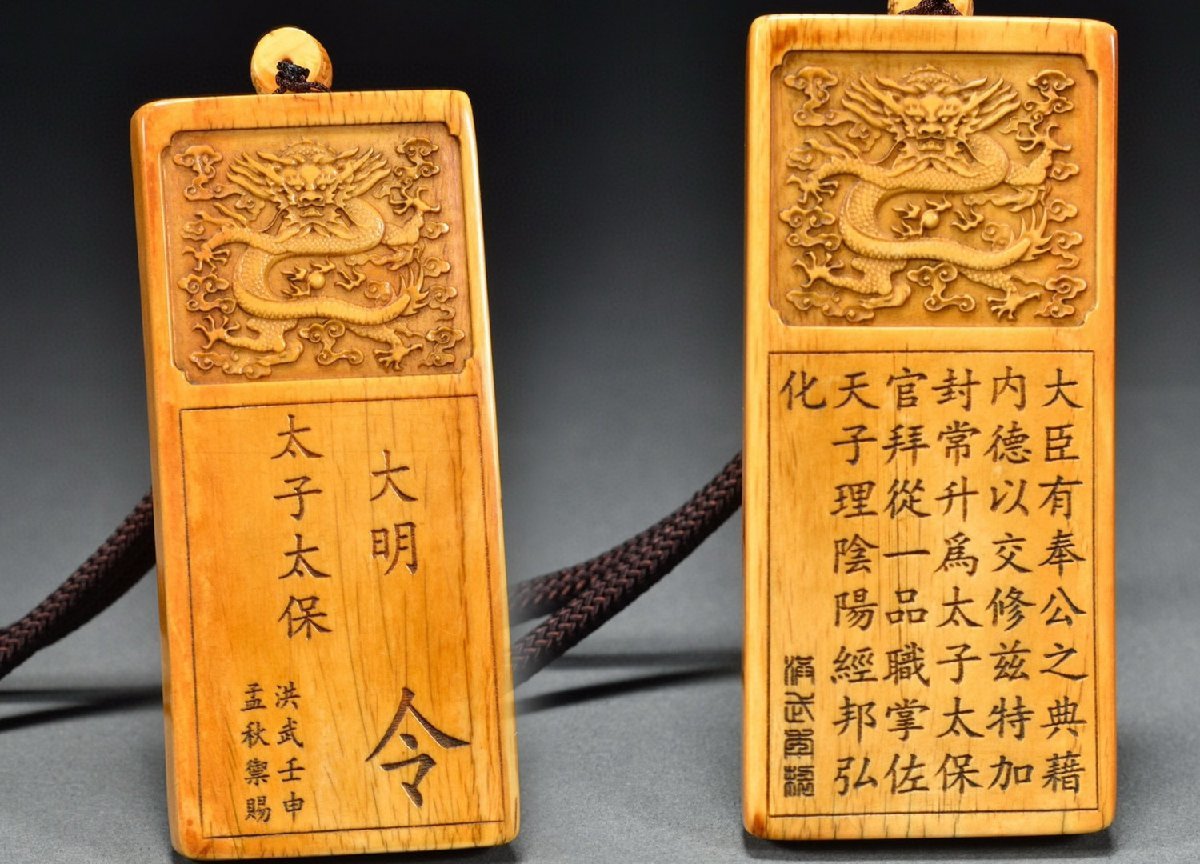 大明令
太子太保
洪武壬申
孟秋禦賜
大臣有奉公之典藉
内德以交修兹特加
封常升爲太子太保
官拜從一品職掌佐
天子理陰陽經邦弘
化
洪武